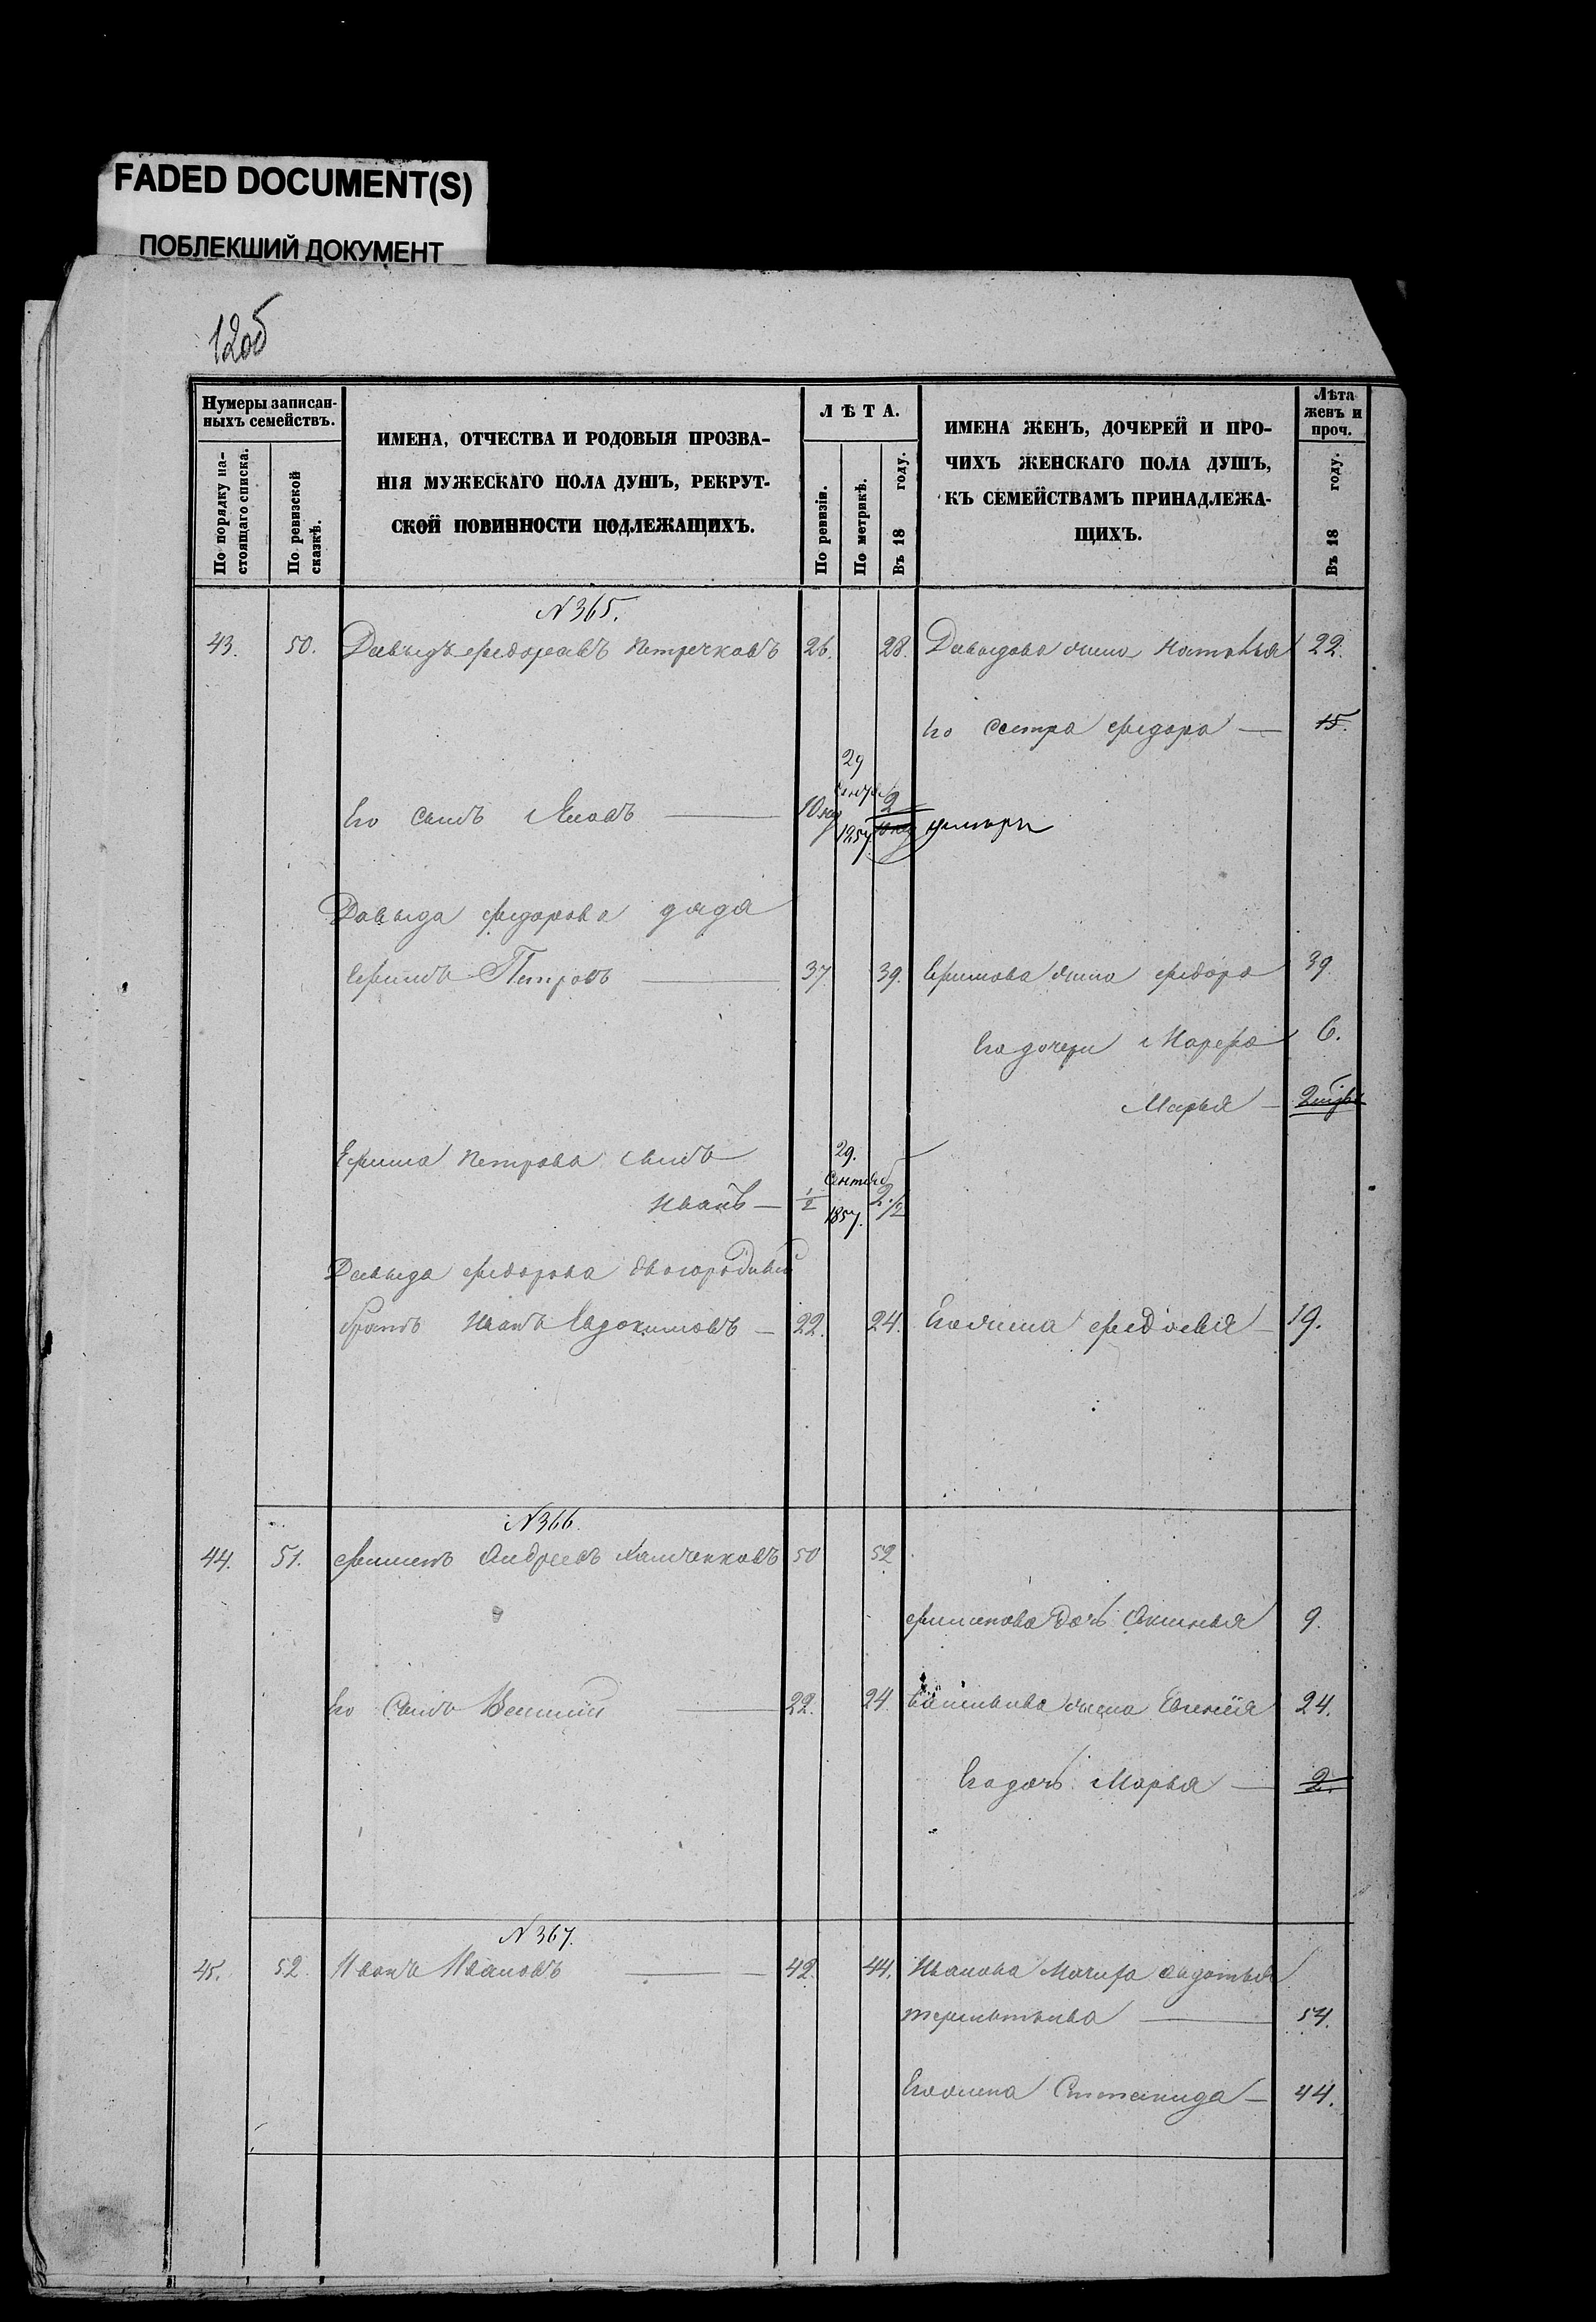 FADED DOCUMENT(S)
ПОБЛЕКШИЙ ДОКУМЕНТ
12об
Нумеры записан-
ныхъ семействъ.
По порядку на-
стоящаго списка.
По ревизской
сказкѣ.
ИМЕНА, ОТЧЕСТВА И РОДОВЫЯ ПРОЗВА-
НІЯ МУЖЕСКАГО ПОЛА ДУШЪ, РЕКРУТ-
СКОЙ ПОВИННОСТИ ПОДЛЕЖАЩИХЪ.
ЛѢТА.
По ревизіи.
По метрикѣ.
Въ 18 году.
ИМЕНА ЖЕНЪ, ДОЧЕРЕЙ И ПРО-
ЧИХЪ ЖЕНСКАГО ПОЛА ДУШЪ,
КЪ СЕМЕЙСТВАМЪ ПРИНАДЛЕЖА-
ЩИХЪ.
Лѣта
женъ и
проч.
Въ 18 году.
N 365.
43. 50. Давыдъ Федоровъ Петречковъ 26. 28. Давыдова жена Наталья 22.
Его сестра Федора — 15.
29
Его сынъ Яковъ — 10 2
1857 умеръ
Давыда Федорова дядя
Ефимъ Петровъ — 37 39. Ефимова жена Федора 39
Его дочери Марфа 6.
Марья —
Ефима Петрова сынъ 29.
Сентяб
Иванъ — 1/2 1857. 2 1/2
Давыда Федорова двоюродный
братъ Иванъ Евдокимовъ — 22. 24. Его жена Федосья — 19.
N 366.
44. 51. Филипъ Андреевъ 50 52
Филипова дочь Аксинья 9.
Его сынъ Василий — 22. 24. Васильева жена Евгенія 24.
Его дочь Марья — 2.
N 367.
45. 52. Иванъ Ивановъ — 42. 44. Иванова Мачиха Авдотья
терентьева — 54.
Его жена Степанида — 44.